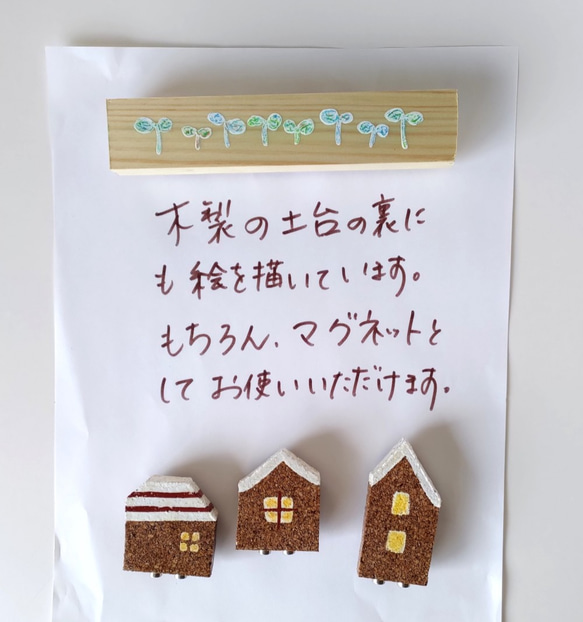 木製の土台の裏に
も絵を描いています。
もちろん、マグネットと
してお使いいただけます。